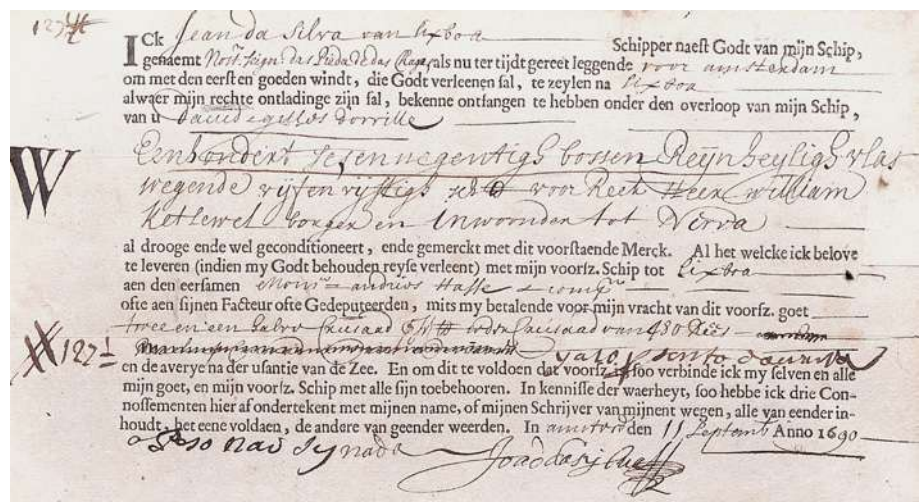 ICk Jean da Silva van lixboa Schipper naest Godt van mijn Schip,
genaemt als nu ter tijdt gereet leggende voor amsterdam
om met den eersten goeden windt, die Godt verleenen sal, te zeylen na lixboa
alwaer mijn rechte ontladinge zijn sal, bekenne ontfangen te hebben onder den overloop van mijn Schip,
van u
W
Eenhondert sesennegentigh bossen Reijnheyligh vlas
wegende vijfenvijftigh voor Reek Heer william
Ketlewel borger en Inwoonder tot Nerva
al drooge ende wel geconditioneert, ende gemerckt met dit voorstaende Merck. Al het welcke ick belove
te leveren (indien my Godt behouden reyse verleent) met mijn voorsz. Schip tot lixboa
aen den eersamen andries Hasse
ofte aen sijnen Facteur ofte Gedeputeerden, mits my betalende voor mijn vracht van dit voorsz. goet
twee en een van 480
en de averye na der usantie van de Zee. En om dit te voldoen dat voorsz. is soo verbinde ick my selven en alle
mijn goet, en mijn voorsz. Schip met alle sijn toebehooren. In kennisse der waerheyt, soo hebbe ick drie Con-
nossementen hier af ondertekent met mijnen name, of mijnen Schrijver van mijnent wegen, alle van eender in-
houdt, het eene voldaen, de andere van geender weerden. In den 11 Septemb Anno 1690